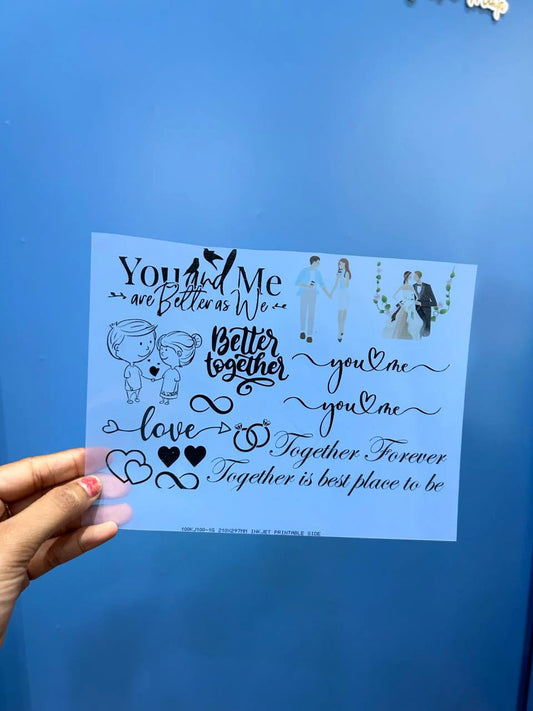 You and Me
are Better as We
Better
together
you me
you me
love
Together Forever
Together is best place to be
100KJ100-1S 210X297MM INKJET PRINTABLE SIDE